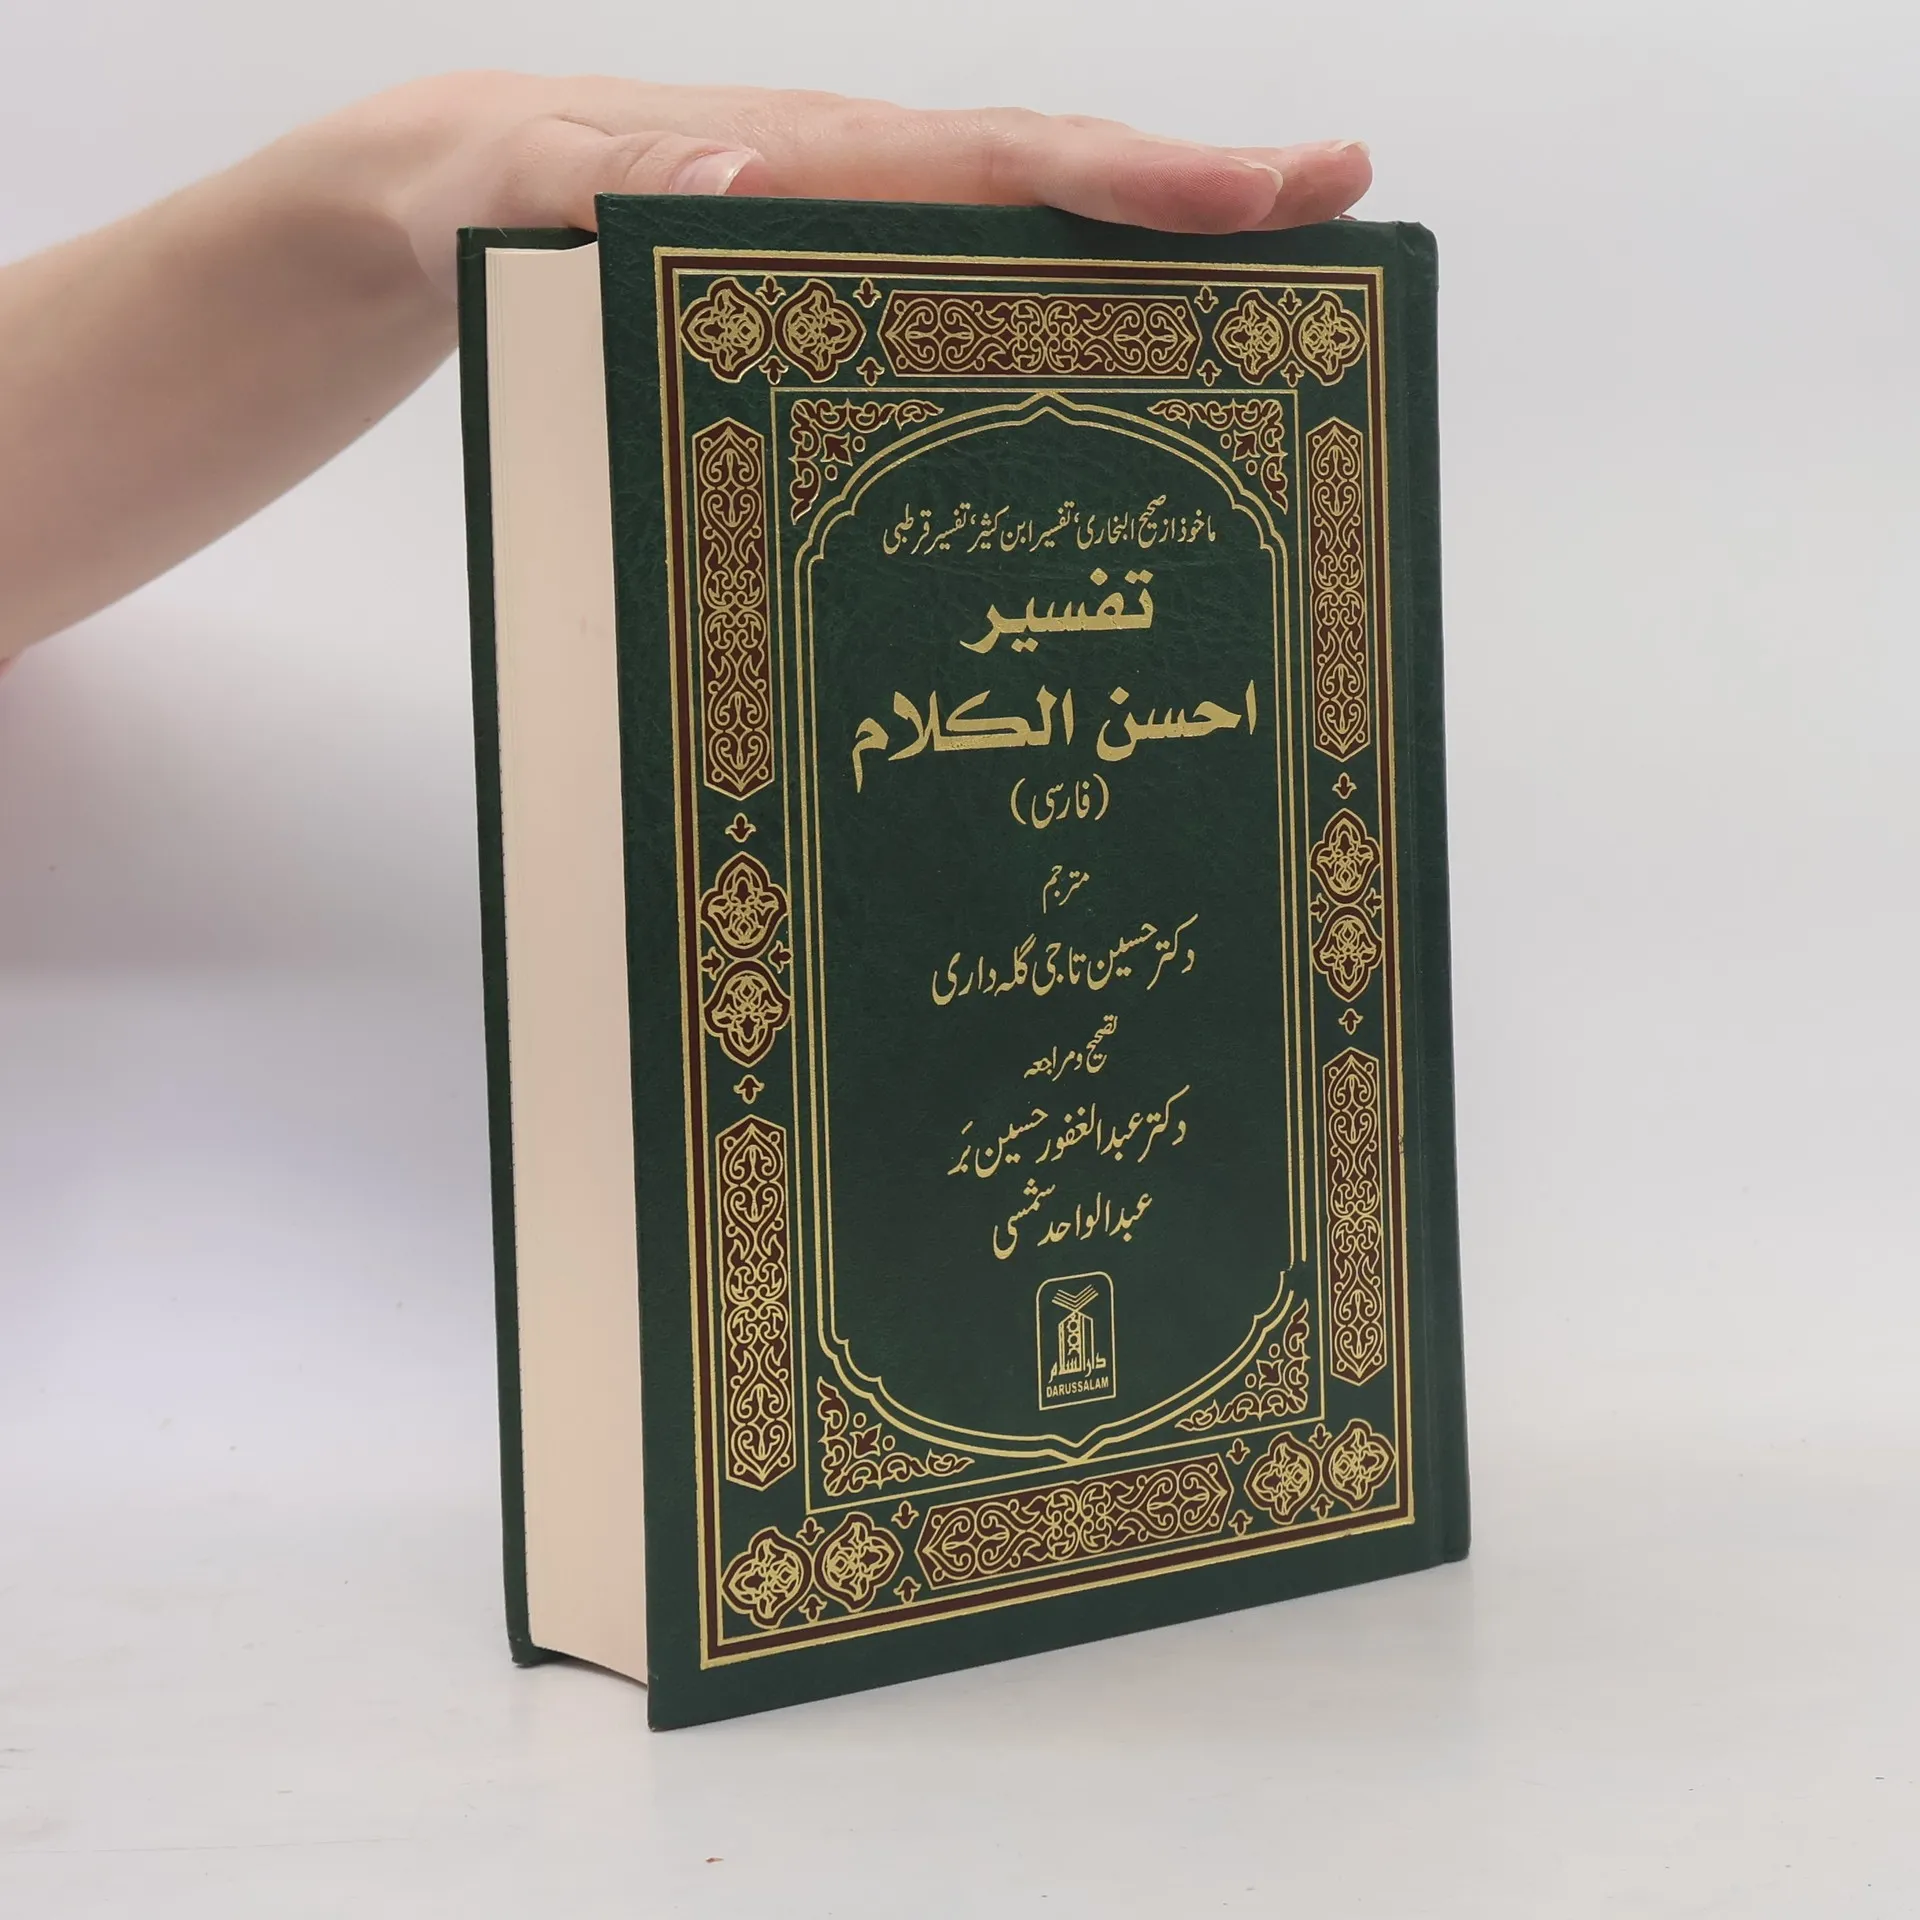 ماخوذ از صحیح البخاری، تفسیر ابن کثیر، تفسیر قرطبی
تفسیر
احسن الکلام
(فارسی)
مترجم
دکتر حسین تاجی گله داری
تصحیح و مراجعه
دکتر عبدالغفور حسین بَر
عبدالواحد شمسی
دارالسلام
DARUSSALAM